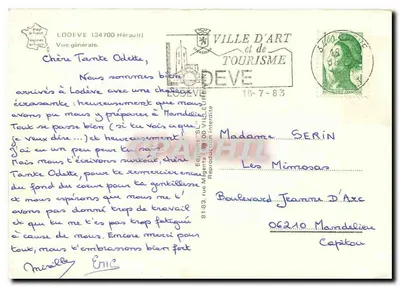 LODEVE (34700 Hérault)
Vue générale.
Chère Tante Odette,
Nous sommes bien
arrivés à Lodève avec une chaleur
écrasante ; heureusement que nous
avons pu nous y préparer à Mandelieu
Tout se passe bien (si tu vois ce que
je veux dire) et heureusement !
j'ai eu un peu peur tu sais
Mais nous t'écrivons surtout, chère
Tante Odette, pour te remercier encore
du fond du cœur pour ta gentillesse
et nous espérons que nous ne t'
avons pas donné trop de travail
et que tu ne t'es pas trop fatiguée
à cause de nous. Encore merci pour
tout, nous t'embrassons bien fort
Mireille Eric
VILLE D'ART
et de
TOURISME
LODEVE
LODEVE
16-7-83
81-83, rue Magenta
Reproduction interdite
Madame SERIN
Les Mimosas
Boulevard Jeanne D'Arc
06210 Mandelieu
Capitou